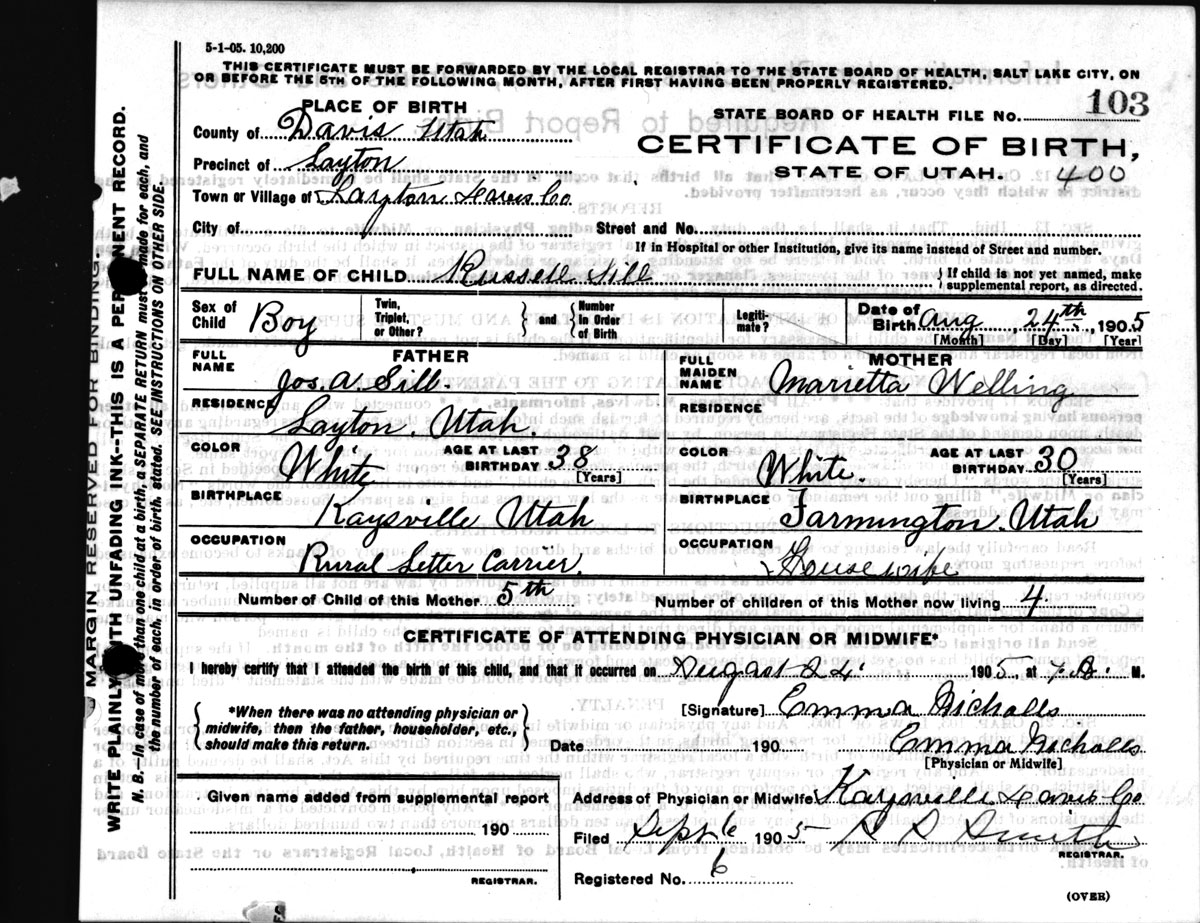 5-1-05. 10,200
THIS CERTIFICATE MUST BE FORWARDED BY THE LOCAL REGISTRAR TO THE STATE BOARD OF HEALTH, SALT LAKE CITY, ON
OR BEFORE THE 5TH OF THE FOLLOWING MONTH, AFTER FIRST HAVING BEEN PROPERLY REGISTERED.
PLACE OF BIRTH
STATE BOARD OF HEALTH FILE NO. 103
County of Davis Utah
CERTIFICATE OF BIRTH,
Precinct of Layton
STATE OF UTAH. 400
Town or Village of Layton Davis Co
City of Street and No.
If in Hospital or other Institution, give its name instead of Street and number.
FULL NAME OF CHILD Russell Sill { If child is not yet named, make supplemental report, as directed.
Sex of Child Boy
Twin, Triplet, or Other? } and { Number in Order of Birth
Legiti-mate?
Date of Birth Aug 24th, 1905
[Month] [Day] [Year]
FATHER
FULL NAME Jos. A Sill.
RESIDENCE Layton. Utah.
COLOR White AGE AT LAST BIRTHDAY 38 [Years]
BIRTHPLACE Kaysville Utah
OCCUPATION Rural Letter Carrier.
MOTHER
FULL MAIDEN NAME Marietta Welling
RESIDENCE
COLOR White. AGE AT LAST BIRTHDAY 30 [Years]
BIRTHPLACE Farmington. Utah
OCCUPATION House wife
Number of Child of this Mother 5th Number of children of this Mother now living 4.
CERTIFICATE OF ATTENDING PHYSICIAN OR MIDWIFE*
I hereby certify that I attended the birth of this child, and that it occurred on August 24 1905, at 7 M.
{ *When there was no attending physician or midwife, then the father, householder, etc., should make this return. }
[Signature] Emma Nicholls
Date 190 Emma Nicholls
[Physician or Midwife]
Given name added from supplemental report
190
REGISTRAR.
Address of Physician or Midwife Kaysville Davis Co
Filed Sept 6 1905 Smith
REGISTRAR.
Registered No. 6
(OVER)
MARGIN RESERVED FOR BINDING.
WRITE PLAINLY WITH UNFADING INK--THIS IS A PERMANENT RECORD.
N. B.—In case of more than one child at a birth, a SEPARATE RETURN must be made for each, and
the number of each, in order of birth, stated. SEE INSTRUCTIONS ON OTHER SIDE.